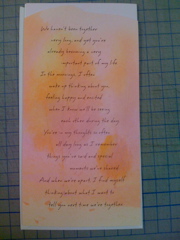 We haven't been together
very long, and yet you're
already becoming a very
important part of my life.
In the morning, I often
wake up thinking about you
feeling happy and excited
when I know we'll be seeing
each other during the day.
You're in my thoughts so often
all day long as I remember
things you've said and special
moments we've shared.
And when we're apart, I find myself
thinking about what I want to
tell you next time we're together.